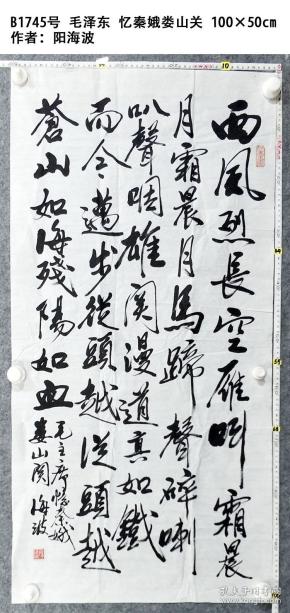 B1745号 毛泽东 忆秦娥娄山关 100×50cm
作者：阳海波
西風烈長空雁叫霜晨
月霜晨月馬蹄聲碎喇
叭聲咽雄関漫道真如鐵
而今邁步從頭越從頭越
蒼山如海殘陽如血
毛主席憶秦娥
婁山関海波